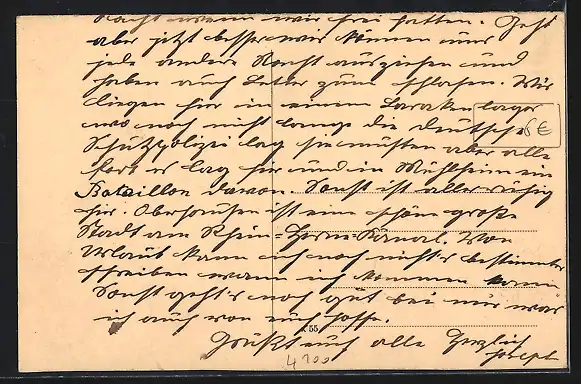 Nacht wenn wir frei hatten. Jetzt
aber jetzt besser wir können uns
jede andere Nacht ausziehen und
haben auch Better zum schlafen. Wir
liegen hier in einem Baraken lager
wo noch nicht lange die deutsche
Schutzpolizei lag sie mußten aber alle
fort es lag hier und in Mühlheim ein
Bataillon davon. Sonst ist alles ruhig
hir. Oberhausen ist eine schöne große
Stadt am Rhein=Herne-Kanal. Von
Urlaub kann ich noch nicht's bestimmtes
schreiben wann ich kommen kann
Sonst geht's noch gut bei mir was
ich auch von euch hoffe.
Grüßt euch alle Herzlich
Joseph
6 €
55
4700